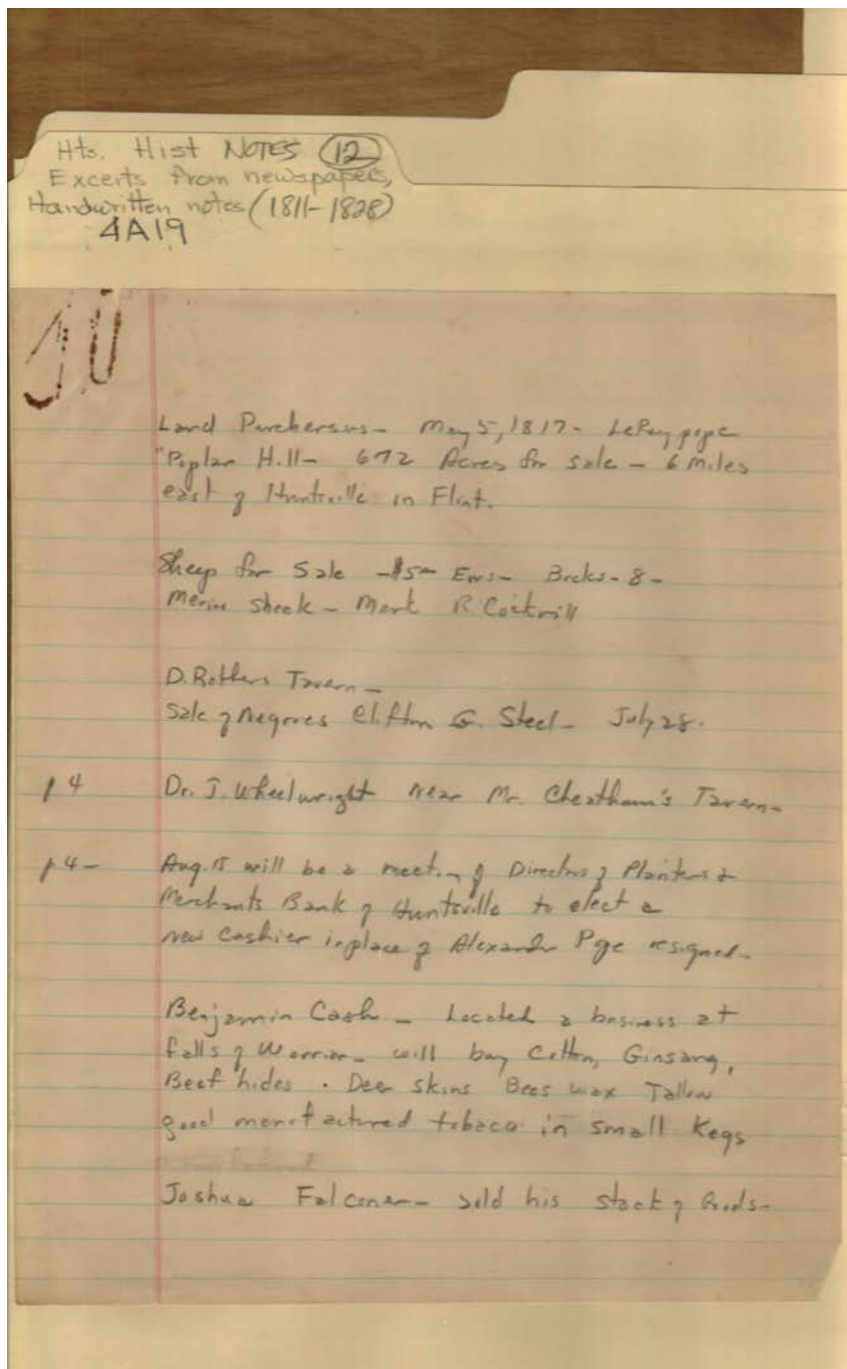 Hts. Hist NOTES 12
Excerts from newspapers,
Handwritten notes (1811-1828)
4A19
Land Purchersers - May 5, 1817 - LeRoy pope
"Poplar Hill - 672 Acres for sale - 6 miles
east of Huntsville in Flint.
Sheep for Sale - $5 Ews - Bucks - 8 -
Merino - Mark R Cockrill
D. Rothers Tavern -
Sale of Negroes Clifton G. Steel - July 28.
p 4 Dr. J. Wheelwright near Mr. Cheatham's Tavern -
p 4 - Aug. 15 will be a meeting of Directors of Planters &
Merchants Bank of Huntsville to elect a
new Cashier in place of Alexander Pope resigned -
Benjamin Cash - Located a business at
falls of Warrior - will buy Cotton, Ginsang,
Beef hides . Deer skins Bees wax Tallow
good manufactured tobaco in small Kegs
Joshua Falconer - sold his stock of Goods -